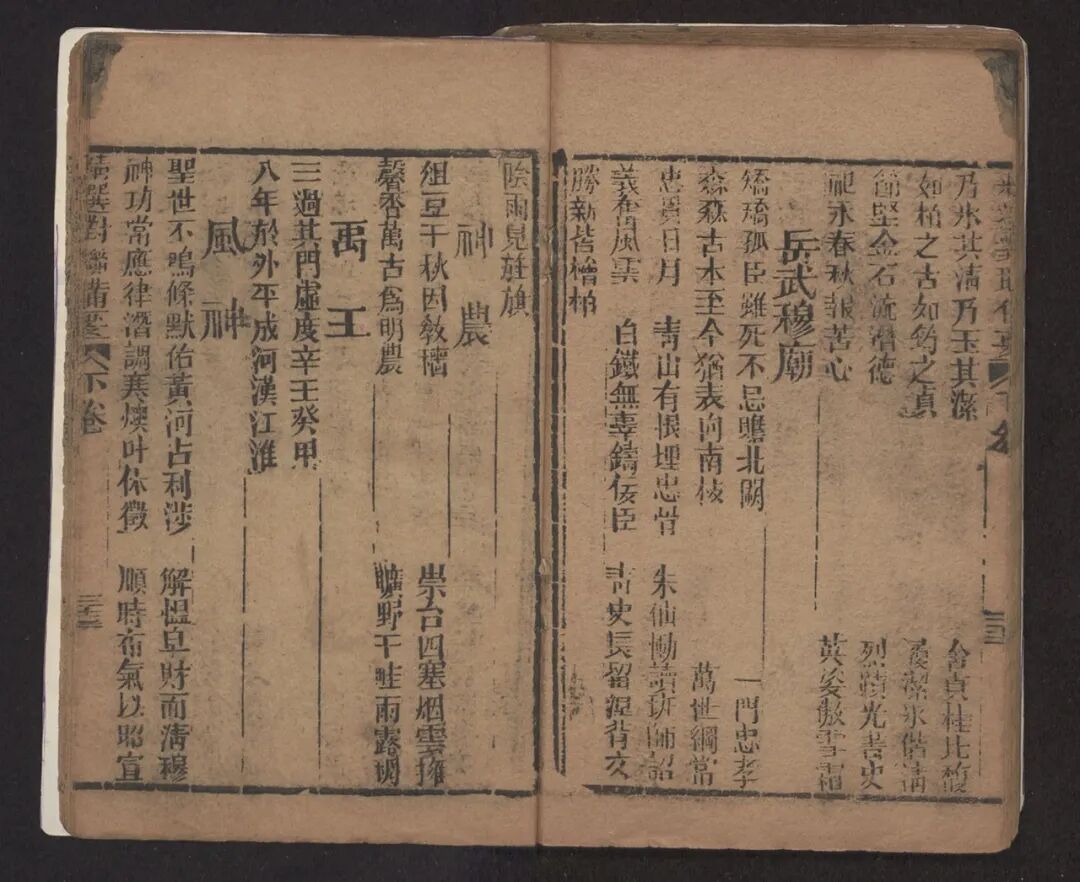 乃氷其清乃玉其潔
如柏之古如筠之貞
節堅金石流潛德
祀永春秋報苦心
含貞桂比馥
履潔氷偕清
烈蹟光青史
英姿傲雪霜
岳武穆廟
矯矯孤臣雖死不忘瞻北闕
森森古木至今猶表向南枝
忠貫日月
義薄風雲
青山有恨埋忠骨
白鐵無辜鑄佞臣
一門忠孝
萬世綱常
朱仙慟讀班師詔
青史長留涅背文
勝新皆檜柏
陰雨見旌旗
神農
俎豆千秋因敎穡
馨香萬古爲明農
崇台四塞烟雲擁
曠野千畦雨露稠
禹王
三過其門虛度辛壬癸甲
八年於外平成河漢江淮
風神
聖世不鳴條默佑黃河占利涉
神功常應律潛調寒燠叶休徵
解慍阜財而清穆
順時布氣以昭宣
精選對聯備要
下卷
三十二